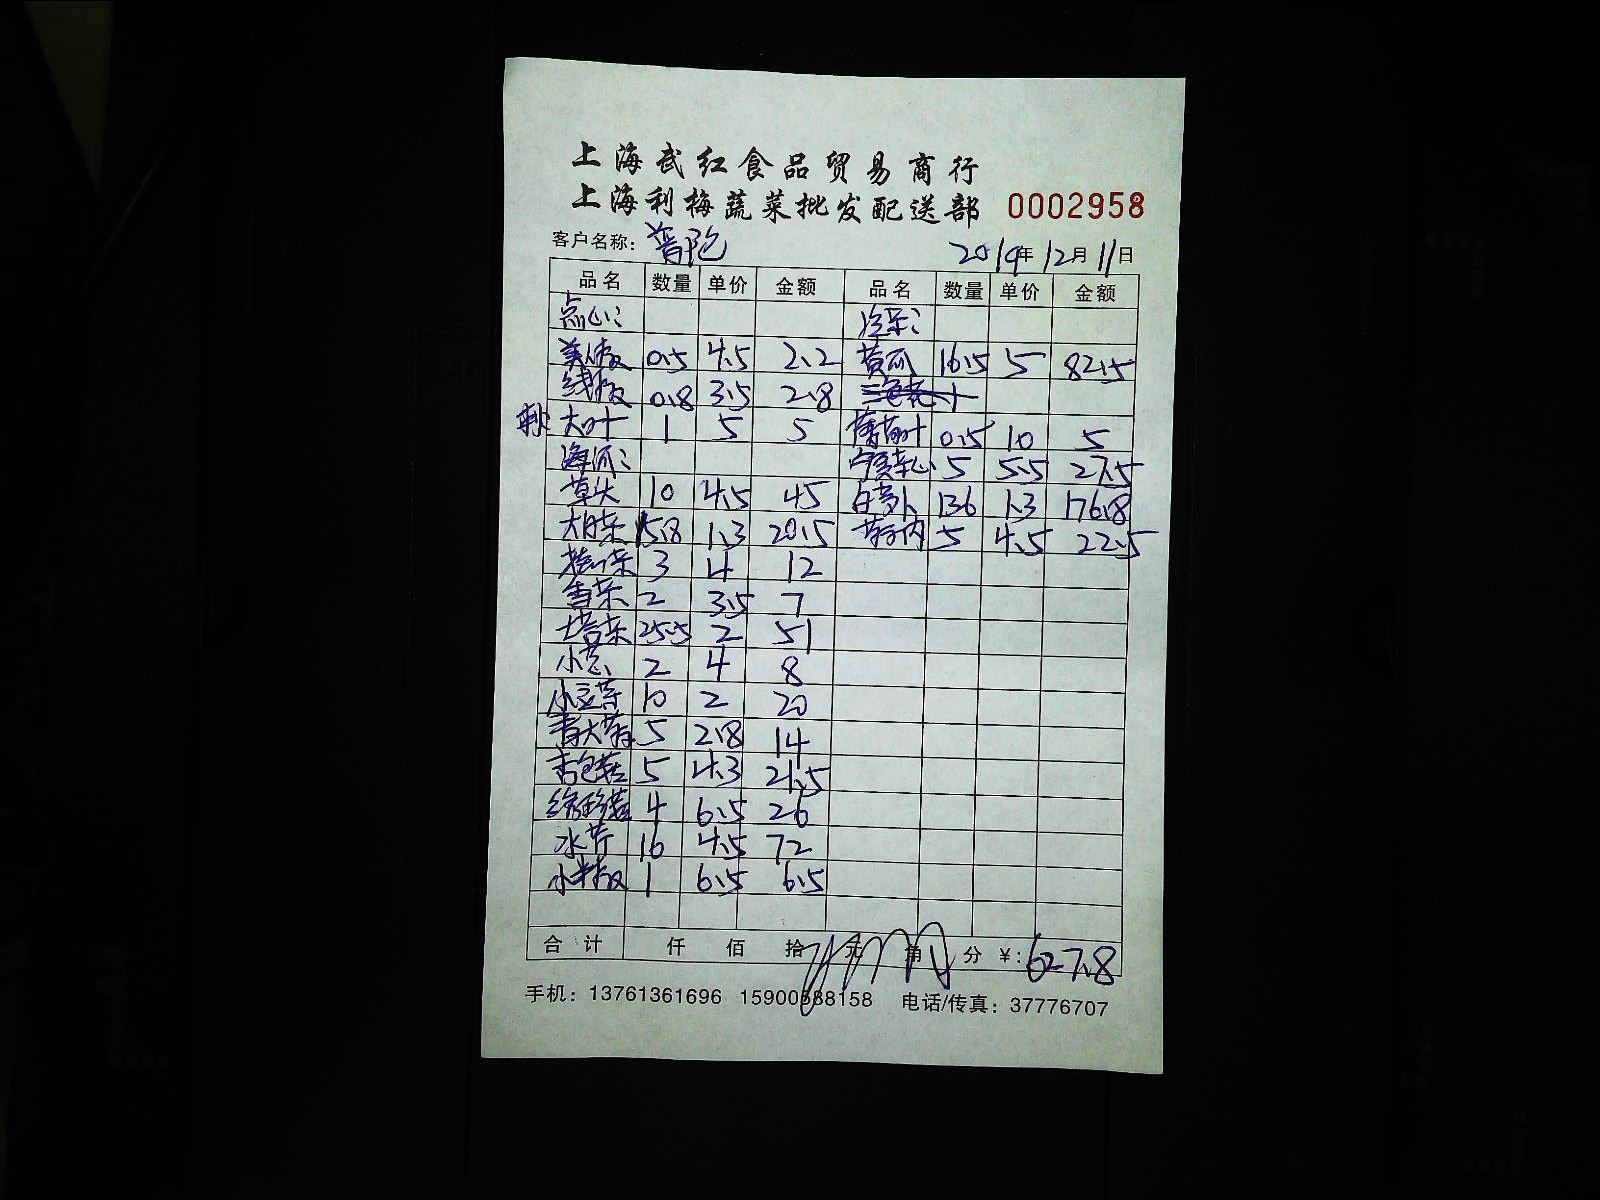 上海武红食品贸易商行
上海利梅蔬菜批发配送部 0002958
客户名称: 普陀 2019年12月11日
品名 数量 单价 金额 品名 数量 单价 金额
点心: 冷菜:
美人椒 0.5 4.5 2.2 黄瓜 16.5 5 82.5
线椒 0.8 3.5 2.8
大叶 1 5 5 薄荷叶 0.5 10 5
海派: 菜心 5 5.5 27.5
草头 10 4.5 45 白萝卜 136 1.3 176.8
大白菜 15.8 1.3 20.5 5 4.5 22.5
3 4 12
雪菜 2 3.5 7
塔菜 25.5 2 51
小葱 2 4 8
小豆芽 10 2 20
青大蒜 5 2.8 14
杏鲍菇 5 4.3 21.5
4 6.5 26
水芹 16 4.5 72
小米椒 1 6.5 6.5
合计 仟 佰 拾 元 角 分 ¥: 627.8
手机: 13761361696 15900588158 电话/传真: 37776707